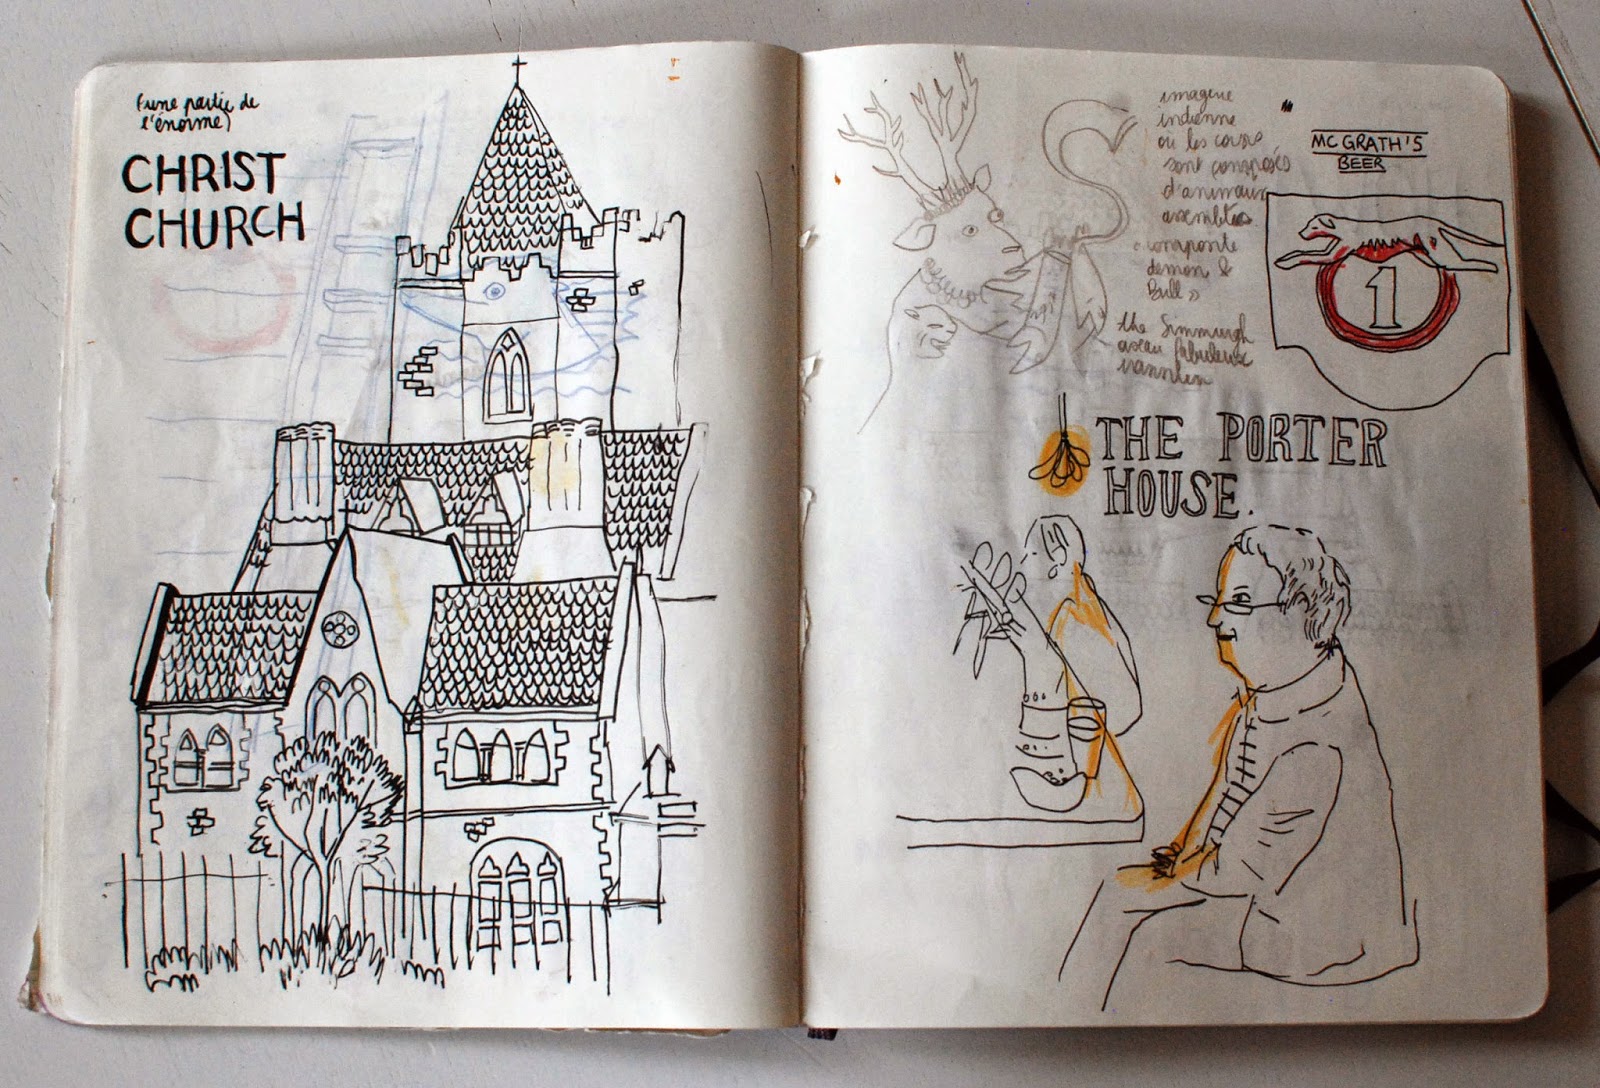 (une partie de
l'énorme)
CHRIST
CHURCH
imagerie
indienne
où les corps
sont composés
d'animaux
assemblés
composite
demon &
Bull »
the Simmurgh
oiseau fabuleux
iranien
MC GRATH'S
BEER
1
THE PORTER
HOUSE.